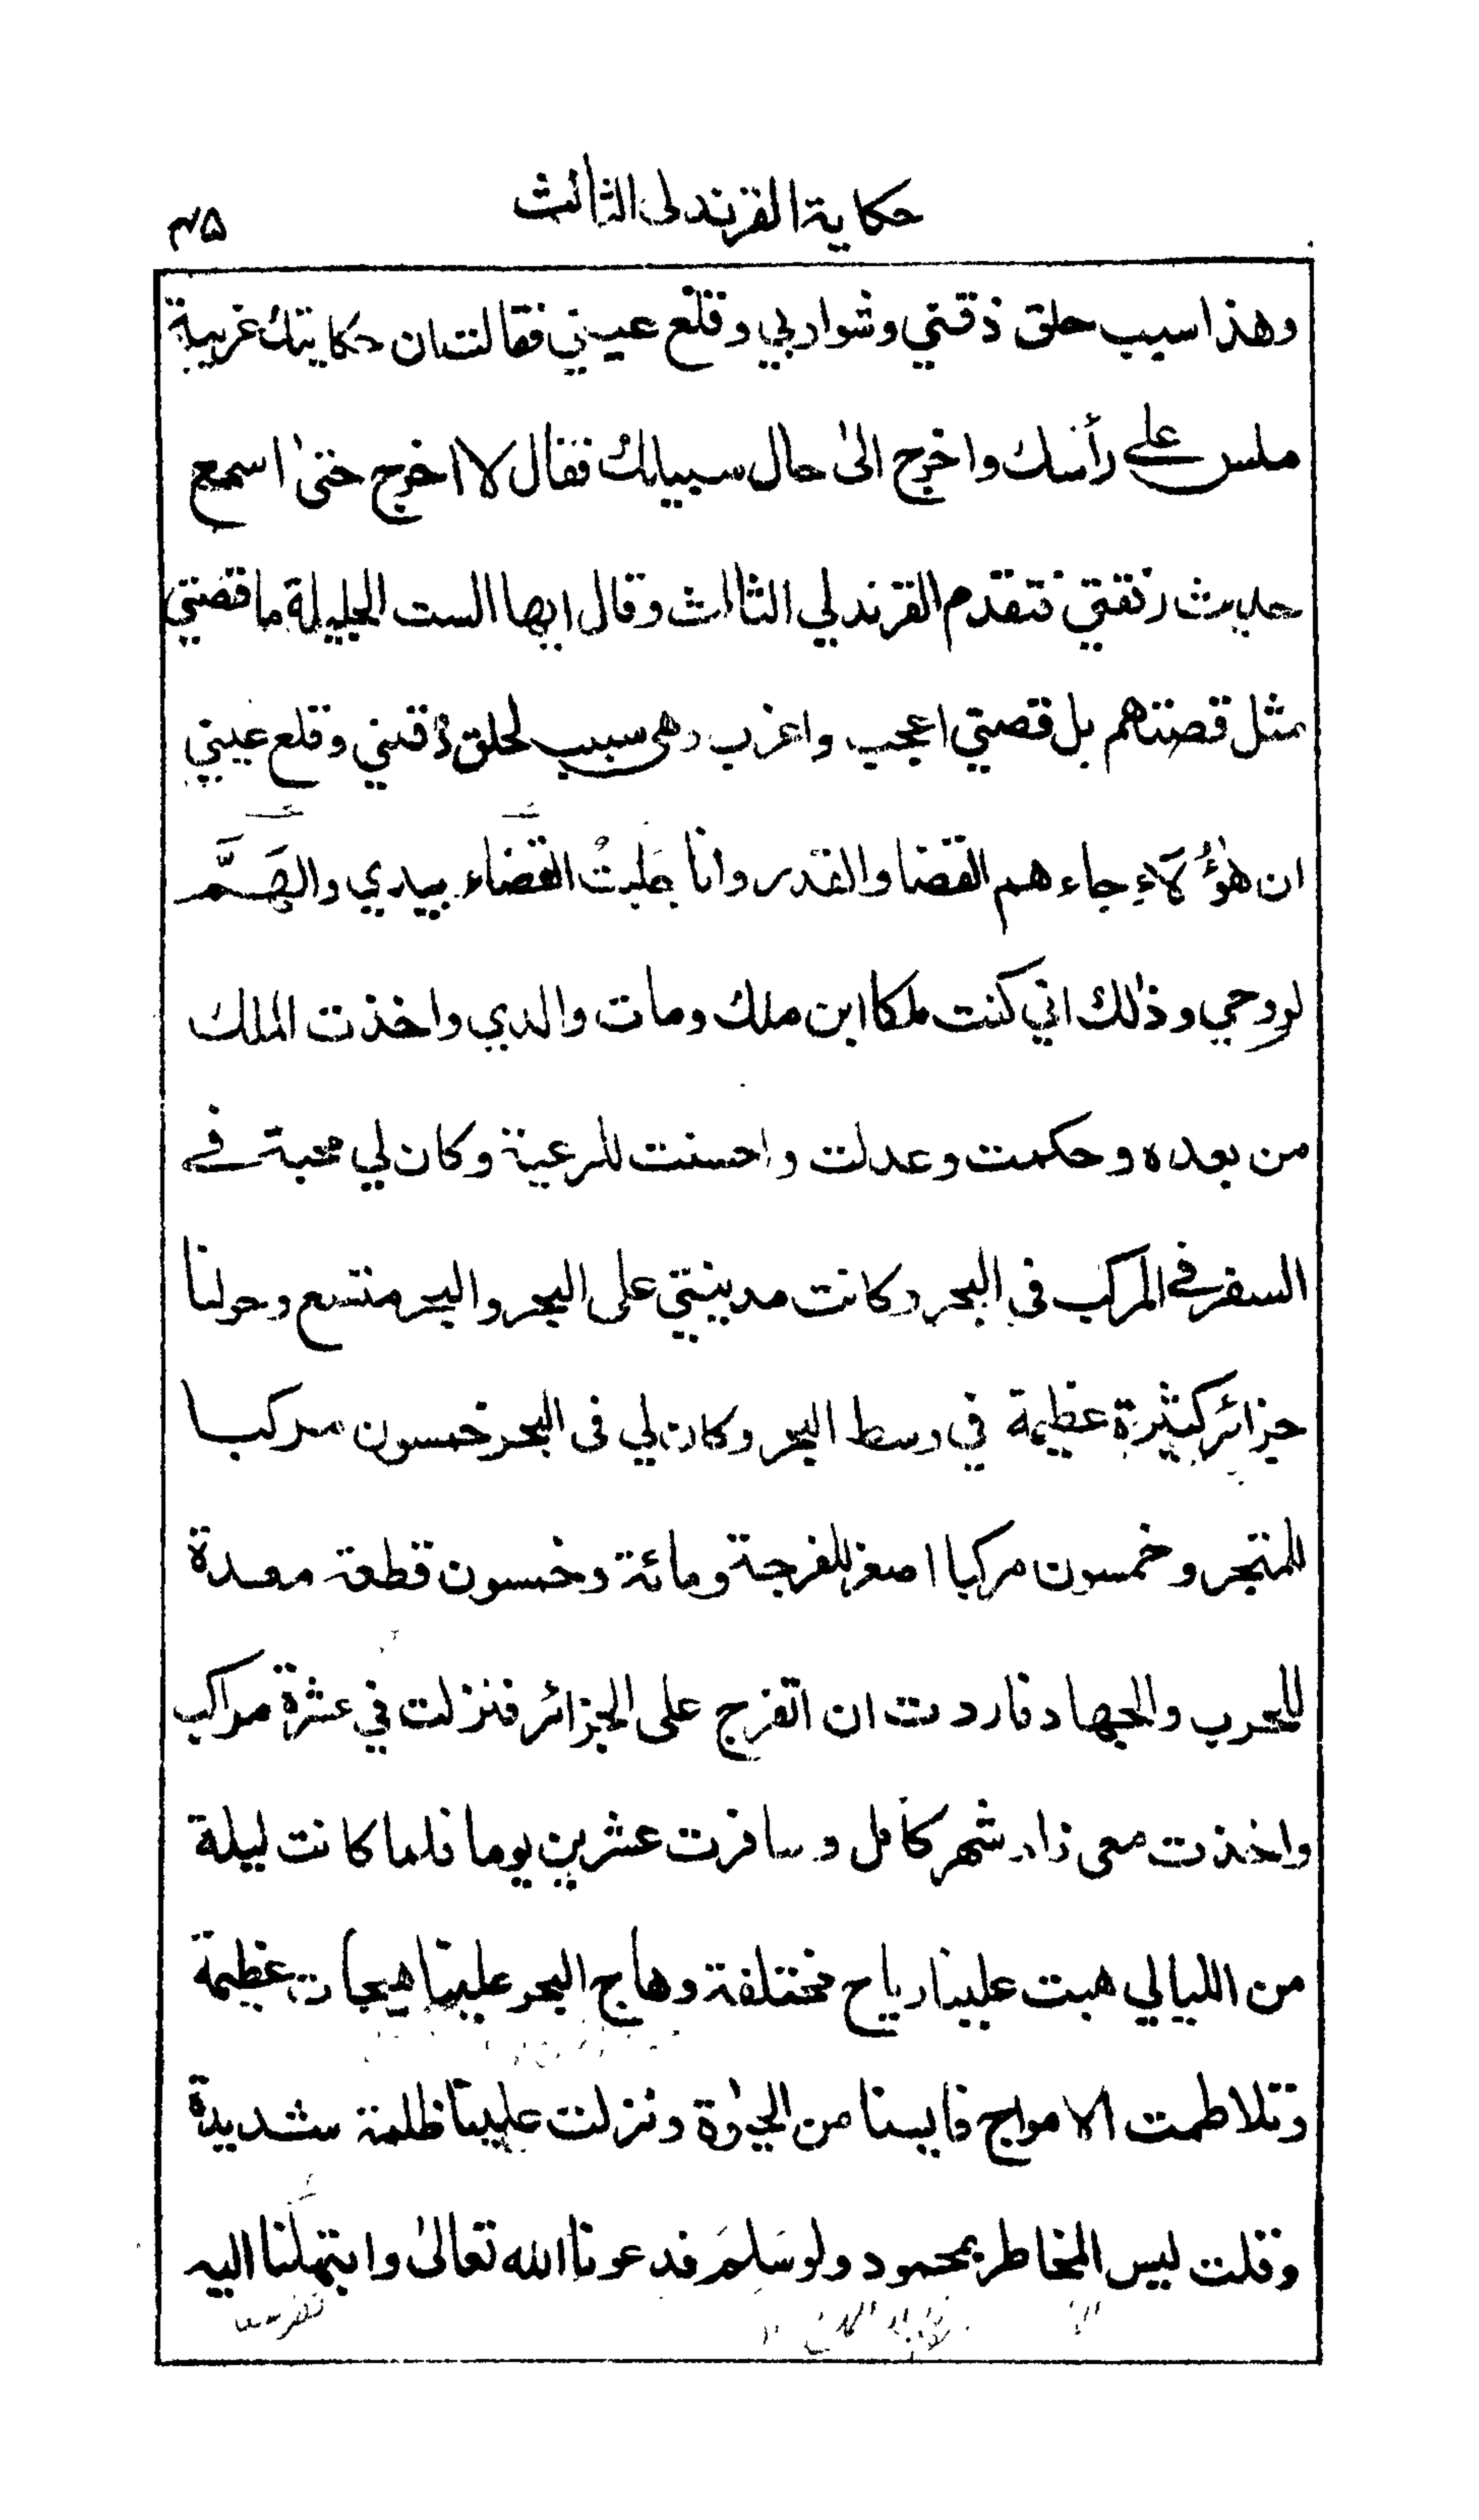 حكاية القرندلى الثالث
وهذا سبب حلق ذقني وشواربي وقلع عيني فقالت ان حكايتك غريبة
ملس على رأسك واخرج الىٰ حال سبيلك فقال لا اخرج حتىٰ اسمع
حديث رفقتي فتقدم القرندلي الثالث وقال ايها الست الجليلة ما قصتي
مثل قصتهم بل قصتي اعجب واغرب وهى سبب لحلق ذقني وقلع عيني
ان هٰؤُلَاءِ جاء هم القضا والقدر وانا جَلبتُ القضاء بيدي والهَمَّ
لروحي وذالك اني كنت ملكا ابن ملك ومات والدي واخذت الملك
من بعده وحكمت وعدلت واحسنت للرعية وكان لي محبة في
السفر في المركب فى البحر وكانت مدينتي على البحر والبحر متسع وحولنا
جزائر كثيرة عظيمة في وسط البحر وكان لي فى البحر خمسون مركبا
للمتجر وخمسون مركبا اصغر للفرجة ومائة وخمسون قطعة معدة
للحرب والجهاد فاردت ان اتفرج على الجزائر فنزلت في عشرة مراكب
واخذت معى زاد شهر كامل وسافرت عشرين يوما فلما كانت ليلة
من الليالي هبت علينا رياح مختلفة وهاج البحر علينا هيجات عظيمة
وتلاطمت الامواج فايسنا من الحيٰوة ونزلت علينا ظلمة شديدة
وقلت ليس المخاطر بمحمود ولو سَلمَ فدعونا الله تعالىٰ وابتهلنا اليه